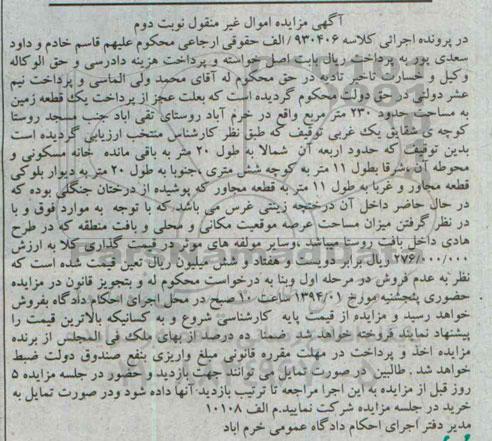 آگهی مزایده اموال غیر منقول نوبت دوم
در پرونده اجرائی کلاسه ۹۳۰۴۰۶ / الف حقوقی ارجاعی محکوم علیهم قاسم خادم و داود
سعدی پور به پرداخت ریال بابت اصل خواسته و پرداخت هزینه دادرسی و حق الوکاله
وکیل و خسارت تاخیر تادیه در حق محکوم له آقای محمد ولی الماسی و پرداخت نیم
عشر دولتی در حق دولت محکوم گردیده است که بعلت عجز از پرداخت یک قطعه زمین
به مساحت حدود ۲۳۰ متر مربع واقع در خرم آباد روستای تقی اباد جنب مسجد روستا
کوچه ی شقایق یک غربی توقیف که طبق نظر کارشناس منتخب ارزیابی گردیده است
بدین توقیف که حدود اربعه آن شمالا به طول ۲۰ متر به باقی مانده خانه مسکونی و
محوطه آن ،شرقا بطول ۱۱ متر به کوچه شش متری ،جنوبا به طول ۲۰ متر به دیوار بلوکی
قطعه مجاور و غربا به طول ۱۱ متر به قطعه مجاور که پوشیده از درختان جنگلی بوده که
در حال حاضر داخل آن درختچه زینتی غرس می باشد که با توجه به موارد فوق و با
در نظر گرفتن میزان مساحت عرصه موقعیت مکانی و محلی و بافت منطقه که در طرح
هادی داخل بافت روستا میباشد ،وسایر مولفه های موثر در قیمت گذاری کلا به ارزش
۲۷۶/۰۰۰/۰۰۰ ریال برابر دویست و هفتاد و شش میلیون ریال تعین قیمت شده است که
نظر به عدم فروش در مرحله اول وبنا به درخواست محکوم له و بتجویز قانون در مزایده
حضوری پنجشنبه مورخ ۱۳۹۴/۰۱ ساعت ۱۰ صبح در محل اجرای احکام دادگاه بفروش
خواهد رسید و مزایده از قیمت پایه کارشناسی شروع و به کسانیکه بالاترین قیمت را
پیشنهاد نمایند فروخته خواهد شد ضمنا ده درصد از بهای ملک فی المجلس از برنده
مزایده اخذ و پرداخت در مهلت مقرره قانونی مبلغ واریزی بنفع صندوق دولت ضبط
خواهد شد . طالبین در صورت تمایل می توانند جهت بازدید و حضور در جلسه مزایده ۵
روز قبل از مزایده به این اجرا مراجعه تا ترتیب بازدید آنها داده شود ودر صورت تمایل به
خرید در جلسه مزایده شرکت نمایید.م الف ۱۰۱۰۸
مدیر دفتر اجرای احکام دادگاه عمومی خرم اباد